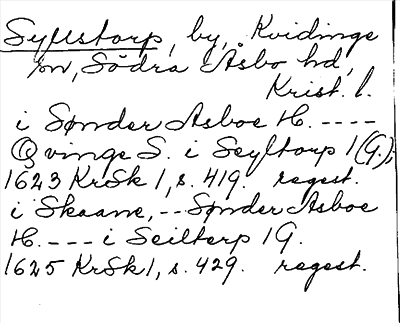 Syllstorp, by, Kvidinge
sn, Södra Åsbo hd,
Krist. l.
i Sønder Asboe H. ----
Qvinge S. i Seyltorp 1 (G.);
1623 KrSk 1, s. 419. regest.
i Skaane, -- Sønder Asboe
H. ---- i Seiltorp 1 G.
1625 KrSk 1, s. 429. regest.